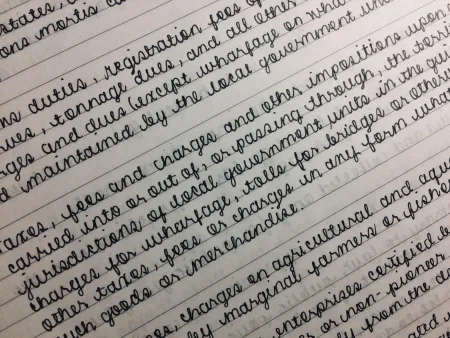 states,
ons mortis ca
ms duties, registration fees of
ues, tonnage dues, and all other
rges and dues (except wharfage on wha
d maintained by the local government wh
taxes, fees and charges and other impositions upon
carried into or out of, or passing through, the terri
jurisdictions of local government units in the gui
charges for wharfage, tolls for bridges or otherw
other taxes, fees or charges in any form what
such goods or merchandise.
es, charges on agricultural and aqua
by marginal farmers or fisher
enterprises certified b
s or non-pioneer
y from the da